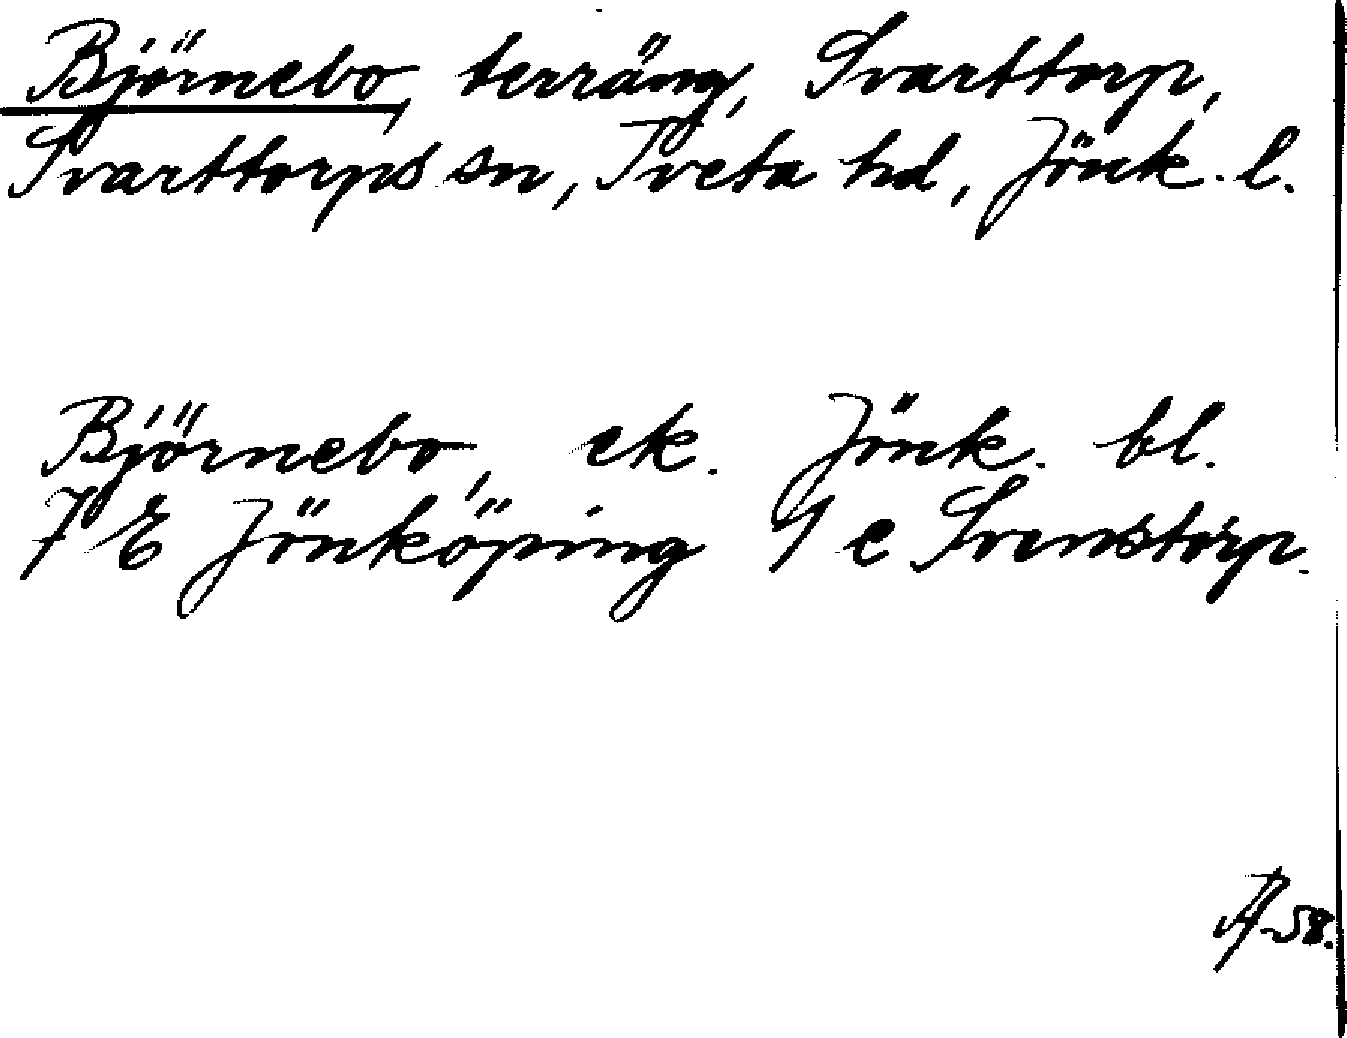 Björnebo, terräng, Svarttorp,
Svarttorps sn, Tveta hd, Jönk. l.
Björnebo, ek. Jönk. bl.
7 E Jönköping 9 e Svenstorp.
58.